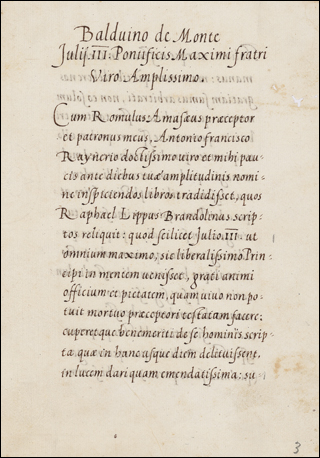 Balduino de Monte
Julij .III. Pontificis Maximi fratri
Viro Amplissimo.
Cum Romulus Amasæus præceptor
et patronus meus, Antonio francisco
Raynerio doctissimo uiro et mihi pau-
cis ante diebus tuæ amplitudinis nomi-
ne inspiciendos libros tradidisset, quos
Raphael Lippus Brandolinus scrip-
tos reliquit: quod scilicet Julio .III. ut
omnium maximo, sic liberalissimo Prin-
cipi in mentem uenisset, grati animi
officium et pietatem, quam uiuo non po-
tuit mortuo præceptori testatam facere;
cuperetque benemeriti de se hominis scrip-
ta, quæ in hanc usque diem delituissent,
in lucem dari quam emendatissima: su
3